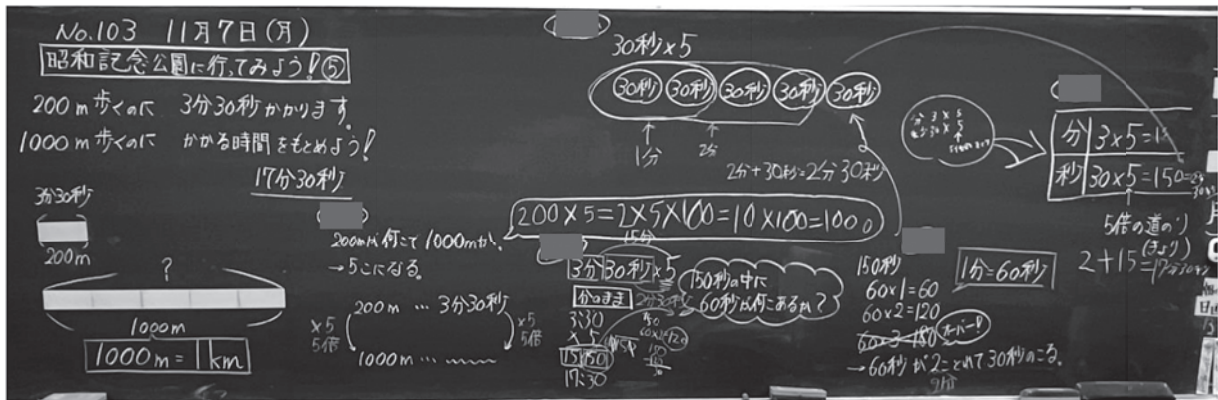 No.103 11月7日(月)
昭和記念公園に行ってみよう!⑤
200m歩くのに 3分30秒かかります。
1000m歩くのに かかる時間をもとめよう!
17分30秒
3分30秒
200m
?
1000m
1000m=1km
200mが何こで1000mか。
→5こになる。
200m…3分30秒
×5
5倍
×5
5倍
1000m…
30秒×5
30秒 30秒 30秒 30秒 30秒
1分 2分
2分+30秒=2分30秒
200×5=2×5×100=10×100=1000
15分
3分30秒×5
分のまま
2分30秒
3:30
×5
15150
17:30
150
60×2=120
150
30
150秒の中に
60秒が何こあるか?
150秒
60×1=60
60×2=120
60×3=180 オーバー!
→60秒が2ことれて30秒のこる。
2分
1分=60秒
分 3×5
秒 30×5
分 3×5=15
秒 30×5=150
5倍の道のり
(きょり)
2+15=17分30秒